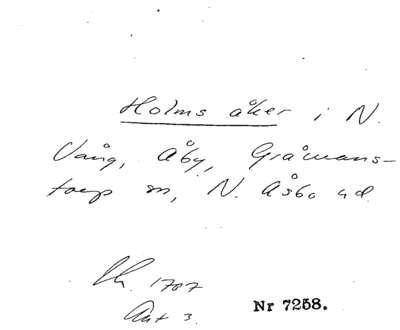 Holms åker i N.
Vång, Åby, Gråmans-
torp sn, N. Åsbo hd.
Ch. 1707
Akt 3.
Nr 7258.